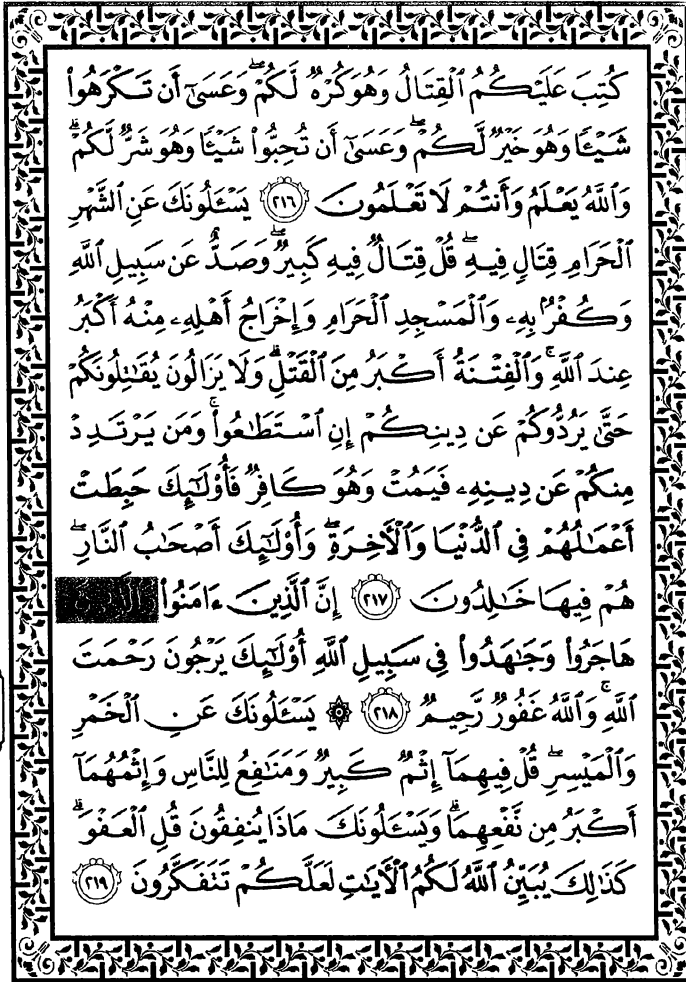 كُتِبَ عَلَيْكُمُ ٱلْقِتَالُ وَهُوَ كُرْهٌ لَّكُمْ ۖ وَعَسَىٰٓ أَن تَكْرَهُوا۟
شَيْـًٔا وَهُوَ خَيْرٌ لَّكُمْ ۖ وَعَسَىٰٓ أَن تُحِبُّوا۟ شَيْـًٔا وَهُوَ شَرٌّ لَّكُمْ ۗ
وَٱللَّهُ يَعْلَمُ وَأَنتُمْ لَا تَعْلَمُونَ ٢١٦ يَسْـَٔلُونَكَ عَنِ ٱلشَّهْرِ
ٱلْحَرَامِ قِتَالٍ فِيهِ ۖ قُلْ قِتَالٌ فِيهِ كَبِيرٌ ۖ وَصَدٌّ عَن سَبِيلِ ٱللَّهِ
وَكُفْرٌۢ بِهِۦ وَٱلْمَسْجِدِ ٱلْحَرَامِ وَإِخْرَاجُ أَهْلِهِۦ مِنْهُ أَكْبَرُ
عِندَ ٱللَّهِ ۚ وَٱلْفِتْنَةُ أَكْبَرُ مِنَ ٱلْقَتْلِ ۗ وَلَا يَزَالُونَ يُقَـٰتِلُونَكُمْ
حَتَّىٰ يَرُدُّوكُمْ عَن دِينِكُمْ إِنِ ٱسْتَطَـٰعُوا۟ ۚ وَمَن يَرْتَدِدْ
مِنكُمْ عَن دِينِهِۦ فَيَمُتْ وَهُوَ كَافِرٌ فَأُو۟لَـٰٓئِكَ حَبِطَتْ
أَعْمَـٰلُهُمْ فِى ٱلدُّنْيَا وَٱلْـَٔاخِرَةِ ۖ وَأُو۟لَـٰٓئِكَ أَصْحَـٰبُ ٱلنَّارِ ۖ
هُمْ فِيهَا خَـٰلِدُونَ ٢١٧ إِنَّ ٱلَّذِينَ ءَامَنُوا۟
هَاجَرُوا۟ وَجَـٰهَدُوا۟ فِى سَبِيلِ ٱللَّهِ أُو۟لَـٰٓئِكَ يَرْجُونَ رَحْمَتَ
ٱللَّهِ ۚ وَٱللَّهُ غَفُورٌ رَّحِيمٌ ٢١٨ ۞ يَسْـَٔلُونَكَ عَنِ ٱلْخَمْرِ
وَٱلْمَيْسِرِ ۖ قُلْ فِيهِمَآ إِثْمٌ كَبِيرٌ وَمَنَـٰفِعُ لِلنَّاسِ وَإِثْمُهُمَآ
أَكْبَرُ مِن نَّفْعِهِمَا ۗ وَيَسْـَٔلُونَكَ مَاذَا يُنفِقُونَ قُلِ ٱلْعَفْوَ ۗ
كَذَٰلِكَ يُبَيِّنُ ٱللَّهُ لَكُمُ ٱلْـَٔايَـٰتِ لَعَلَّكُمْ تَتَفَكَّرُونَ ٢١٩